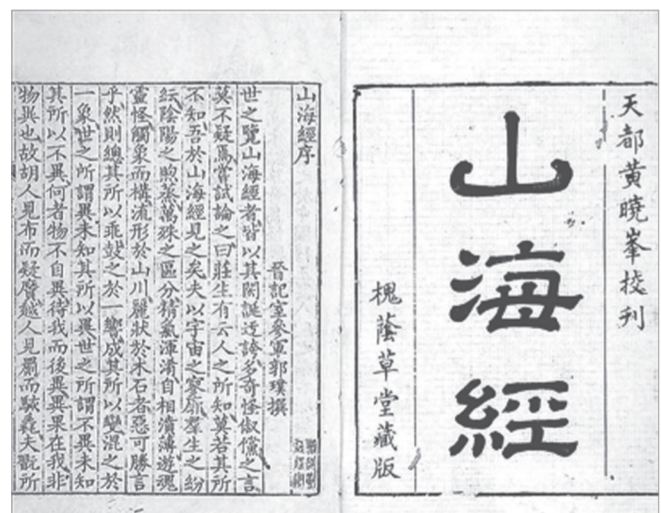 天都黄曉峯挍刊
山海經
槐蔭草堂藏版
山海經序
晉記室參軍郭璞撰
世之覽山海經者皆以其閎誕迂誇多奇怪俶儻之言
莫不疑焉嘗試論之曰莊生有云人之所知莫若其所
不知吾於山海經見之矣夫以宇宙之寥廓羣生之紛
紜陰陽之煦蒸萬殊之區分精氣渾淆自相濆薄遊魂
靈怪觸象而構流形於山川麗狀於木石者惡可勝言
乎然則總其所以乖鼓之於一響成其所以變混之於
一象世之所謂異未知其所以異世之所謂不異未知
其所以不異何者物不自異待我而後異異果在我非
物異也故胡人見布而疑黂越人見罽而駭毳夫翫所